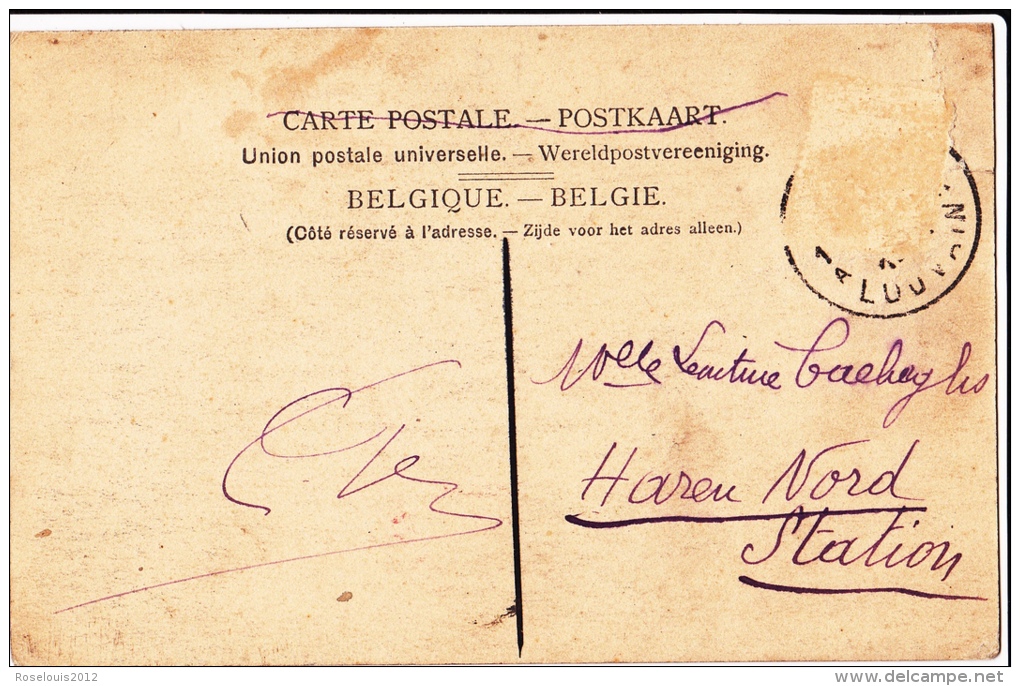 CARTE POSTALE. — POSTKAART.
Union postale universelle. — Wereldpostvereeniging.
BELGIQUE. — BELGIE.
(Côté réservé à l'adresse. — Zijde voor het adres alleen.)
Melle
Haren Nord
Station
Roselouis2012
www.delcampe.net